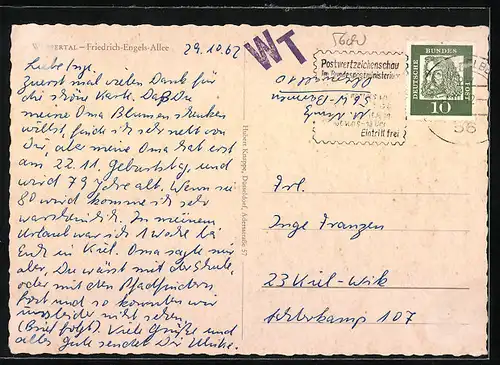 WUPPERTAL – Friedrich-Engels-Allee
29.10.62
Liebe Inge.
Zuerst mal vielen Dank für
die schöne Karte. Daß Du
meine Oma Blumen schenken
willst, finde ich sehr nett von
Dir, aber meine Oma hat erst
am 22.11. Geburtstag, und
wird 79 Jahre alt. Wenn sie
80 wird komme ich sehr
warscheinlich. In meinem
Urlaub war ich 1 Woche bei
Euch in Kiel. Oma sagte mir
aber, Du wärst mit der Schule,
oder mit den Pfadfindern
fort und so konnten wir
uns leider nicht sehen.
(Brief folgt). Viele Grüße und
alles Gute sendet Dir Ulrike.
Hubert Knappe, Düsseldorf, Adersstraße 57
WT
Postwertzeichenschau
im Bundespostministerium
Eintritt frei
DEUTSCHE BUNDESPOST
10
56
56 W-Barmen
Frl.
Inge Franzen
23 Kiel-Wik
Achterkamp 107